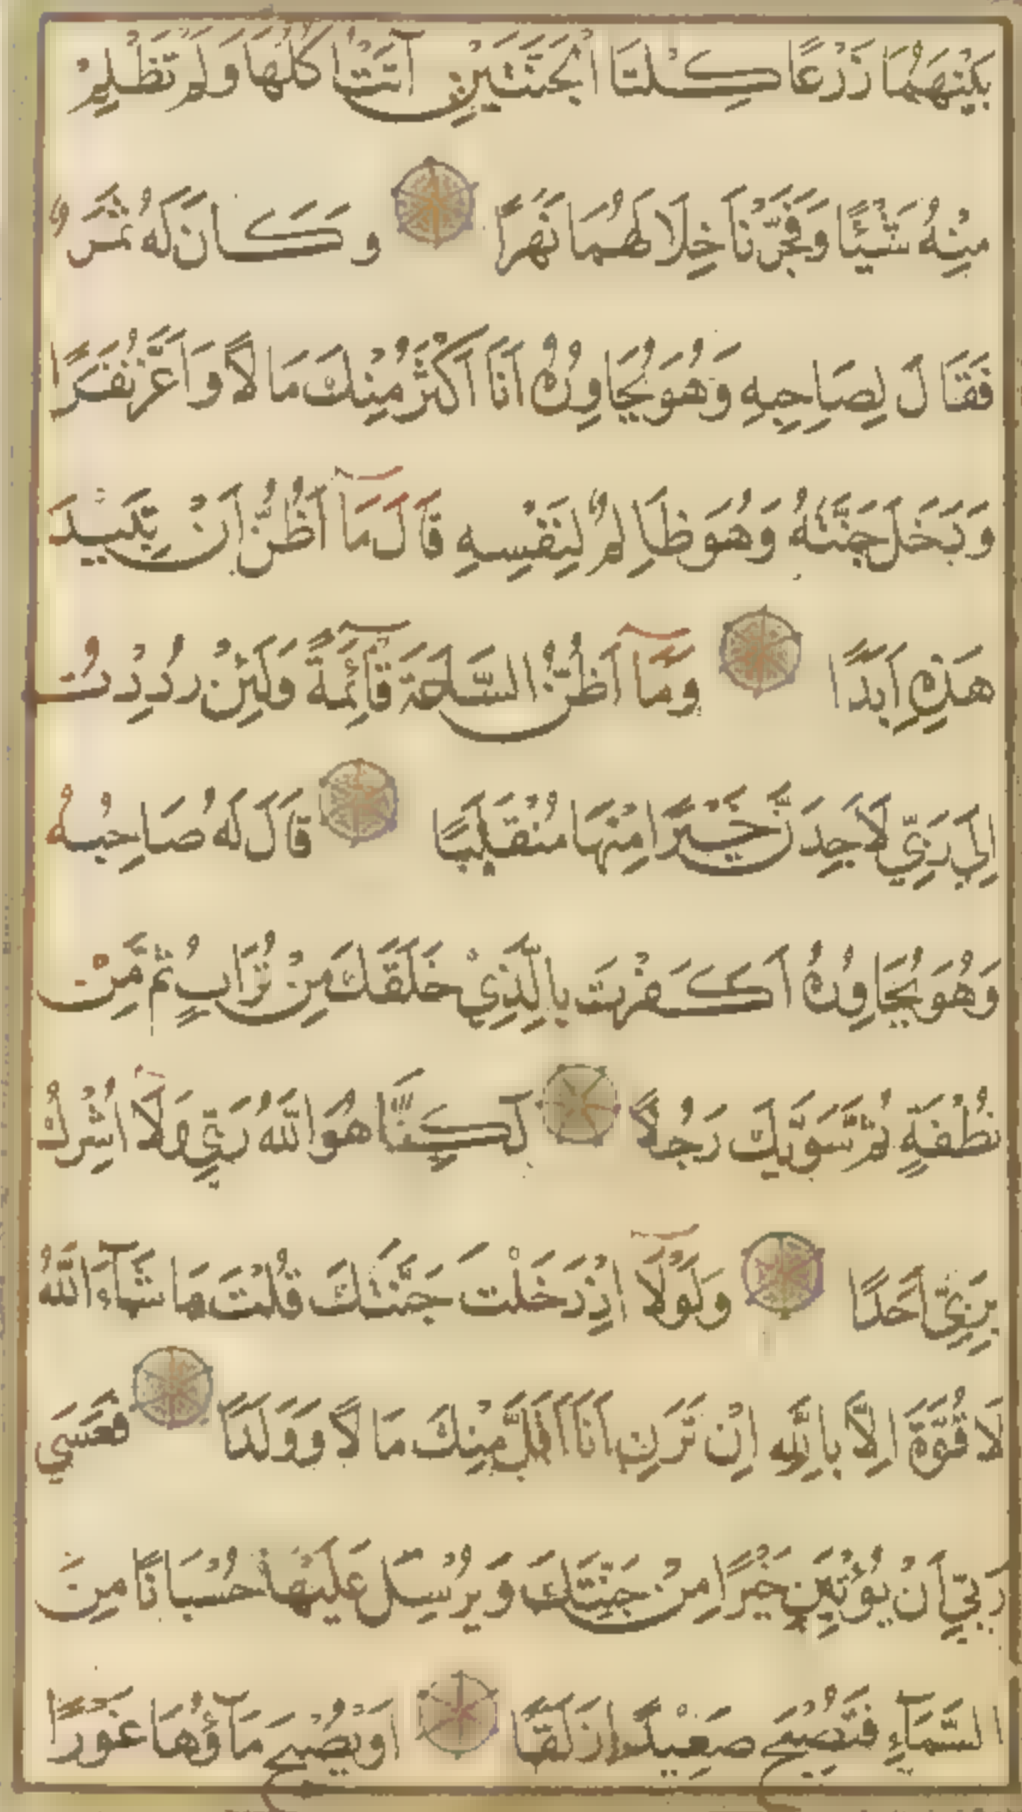 بَيْنَهُمَا زَرْعًا كِلْتَا الْجَنَّتَيْنِ آتَتْ اُكُلَهَا وَلَمْ تَظْلِمْ
مِنْهُ شَيْئًا وَفَجَّرْنَا خِلَالَهُمَا نَهَرًا وَكَانَ لَهُ ثَمَرٌ
فَقَالَ لِصَاحِبِهِ وَهُوَ يُحَاوِرُهُ اَنَا اَكْثَرُ مِنْكَ مَالًا وَاَعَزُّ نَفَرًا
وَدَخَلَ جَنَّتَهُ وَهُوَ ظَالِمٌ لِنَفْسِهِ قَالَ مَا اَظُنُّ اَنْ تَبِيدَ
هَذِهِ اَبَدًا وَمَا اَظُنُّ السَّاعَةَ قَائِمَةً وَلَئِنْ رُدِدْتُ
اِلَى رَبِّي لَاَجِدَنَّ خَيْرًا مِنْهَا مُنْقَلَبًا قَالَ لَهُ صَاحِبُهُ
وَهُوَ يُحَاوِرُهُ اَكَفَرْتَ بِالَّذِيْ خَلَقَكَ مِنْ تُرَابٍ ثُمَّ مِنْ
نُطْفَةٍ ثُمَّ سَوَّيكَ رَجُلًا لَكِنَّا هُوَ اللَّهُ رَبِّي وَلَا اُشْرِكُ
بِرَبِّي اَحَدًا وَلَوْلَا اِذْ دَخَلْتَ جَنَّتَكَ قُلْتَ مَا شَاءَ اللَّهُ
لَا قُوَّةَ اِلَّا بِاللَّهِ اِنْ تَرَنِ اَنَا اَقَلَّ مِنْكَ مَالًا وَوَلَدًا فَعَسَي
رَبِّي اَنْ يُؤْتِيَنِ خَيْرًا مِنْ جَنَّتِكَ وَيُرْسِلَ عَلَيْهَا حُسْبَانًا مِنَ
السَّمَآءِ فَتُصْبِحَ صَعِيْدًا زَلَقًا اَوْ يُصْبِحَ مَآؤُهَا غَوْرًا